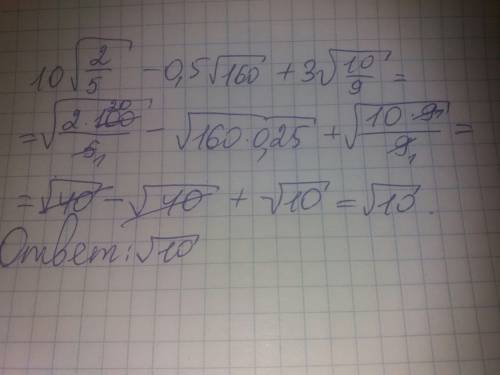 10√(2/5) − 0,5√160 + 3√(10/9) =
= √(2·100/5) − √(160·0,25) + √(10·9/9) =
= √40 − √40 + √10 = √10.
Ответ: √10